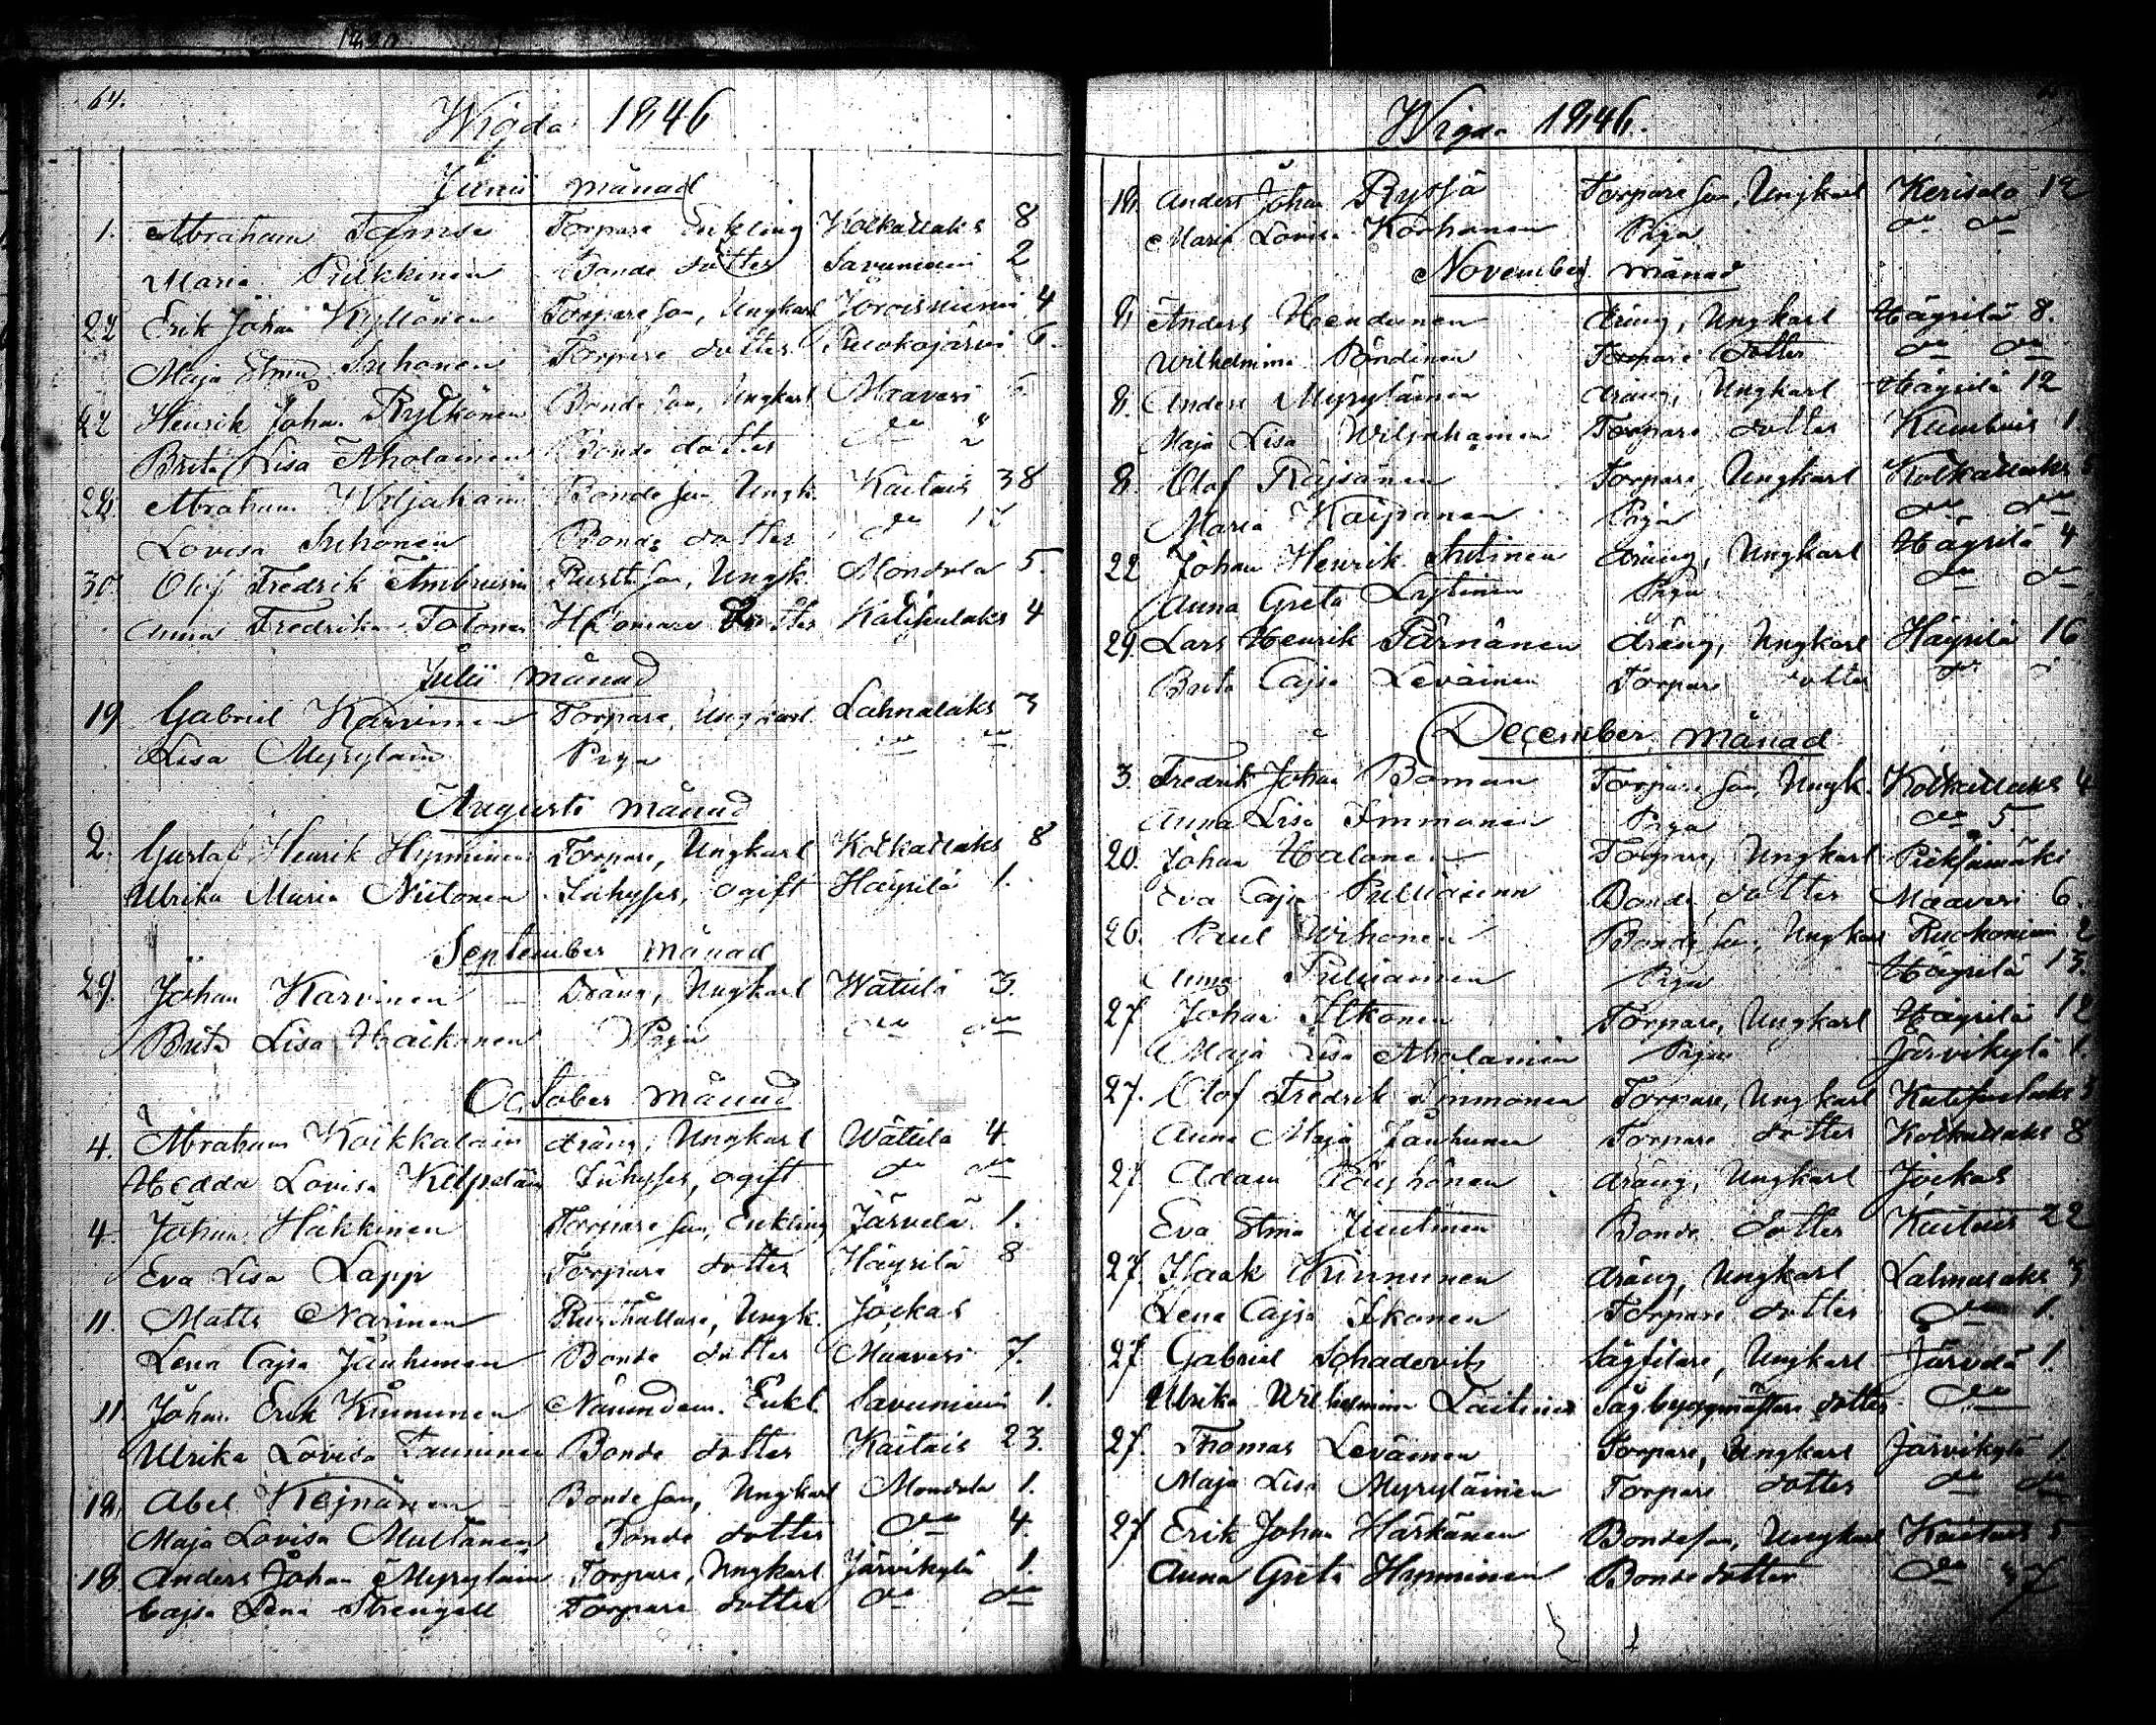 64.
Wigda 1846
Junii månad
1. Abraham Torpare Enkling Kolkallaks 8
Maria Pulkkinen Bonde dotter Savuniemi 2
22 Erik Johan Kyllönen Torpare son, Ungkarl Joroisniemi 4
Maja Stina Suhonen Torpare dotter Ruokojärvi 6.
22 Henrik Johan Rytkönen Bonde son, Ungkarl Maaveri
Brita Lisa Aholainen Bonde dotter do
28. Abraham Wiljahain Bonde son, Ungk. Kaitais 38
Lovisa Suhonen Bonde dotter do
30. Olof Fredrik Ungk. Mondola 5.
Anna Fredrika Tolonen dotter 4
Julii månad
19 Gabriel Karvinen Torpare, Ungkarl. Lahnalaks 3
Lisa Myrylain Piga do do
Augusti månad
2. Gustaf Henrik Hynninen Torpare, Ungkarl Kolkallaks 8
Ulrika Maria Niitonen Inhyses, ogift Häyrilä 1.
September månad
29. Johan Karvinen Dräng, Ungkarl Wättilä 3.
Brita Lisa Haikonen Piga do do
October månad
4. Abraham Koikkalain dräng, Ungkarl Wättilä 4.
Hedda Lovisa Kilpeläin Inhyses, ogift do do
4. Johan Häkkinen Torpare son, Enkling Järvelä 1.
Eva Lisa Lapp Torpare dotter Häyrilä 8
11. Matts Narinen Rusthållare, Ungk. Jockas
Lena Cajsa Jauhunen Bonde dotter Maaveri 7.
11 Johan Erik Kinnunen Nämndem. Enkl. Savuniemi 1.
Ulrika Lovisa Tauninen Bonde dotter Kaitais 23.
18. Abel Bonde son, Ungkarl Mondola 1.
Maja Lovisa Multanen Bonde dotter do 4.
18 Anders Johan Myrylain Torpare, Ungkarl Järvikylä 1.
Cajsa Lena Strengell Torpare dotter do do
Wigda 1846.
18. Anders Johan Rytsä Torpare son, Ungkarl Kerisalo 12
Maria Lovisa Korhonen Piga do do
November månad
8 Anders Hendunen dräng, Ungkarl Häyrilä 8.
Wilhelmina Pöndinen Torpare dotter do do
8. Anders Myryläinen dräng, Ungkarl Häyrilä 12
Maja Lisa Wiljahainen Torpare dotter 1.
8. Olof Räisänen Torpare, Ungkarl Kolkallaks
Maria Kaipanen Piga do do
22 Johan Henrik Autinen dräng, Ungkarl Häyrilä 4
Anna Greta Lyytinen Piga do do
29. Lars Henrik Pärnänen dräng, Ungkarl Häyrilä 16
Brita Cajsa Leväinen Torpare dotter do
December månad
3. Fredrik Johan Boman Torpare son, Ungk. Kolkallaks 4
Anna Lisa Immonen Piga do 5.
20. Johan Halonen Torpare, Ungkarl Pieksämäki
Eva Cajsa Pulliainen Bonde dotter Maaveri 6.
26. Paul Wihonen Bonde son, Ungkarl Ruokoniemi 2
Anna Pulliainen Piga Häyrilä 13.
27 Johan Itkonen Torpare, Ungkarl Häyrilä 12
Maja Lisa Aholainen Piga Järvikylä 1.
27. Olof Fredrik Immonen Torpare, Ungkarl
Anna Maja Jauhunen Torpare dotter Kolkallaks 8
27 Adam Pöyhönen dräng, Ungkarl Jockas
Eva Stina Juutinen Bonde dotter Kaitais 22
27. Isaak Kinnunen dräng, Ungkarl Lahnalaks 3
Lena Cajsa Ikonen Torpare dotter do 1.
27 Gabriel Schadevitz Sågfilare, Ungkarl Järvelä 1.
Ulrika Wilhelmina Laitinen Sågbyggmästare dotter do
27. Thomas Leväinen Torpare, Ungkarl Järvikylä 1.
Maja Lisa Myryläinen Torpare dotter do do
27 Erik Johan Härkänen Bondeson, Ungkarl Kaitais 5
Anna Greta Hynninen Bondedotter do 7